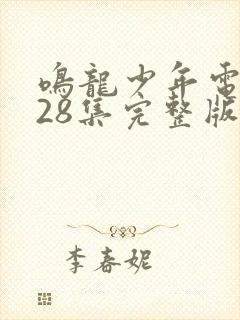 鸣龍少年電
28集完整版
李春妮